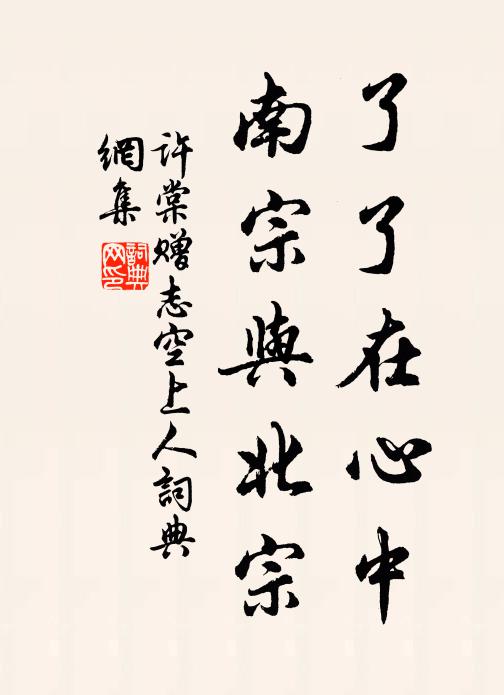 了了在心中
南宗與北宗
許棠贈志空上人詞典
網集
詞典
网印